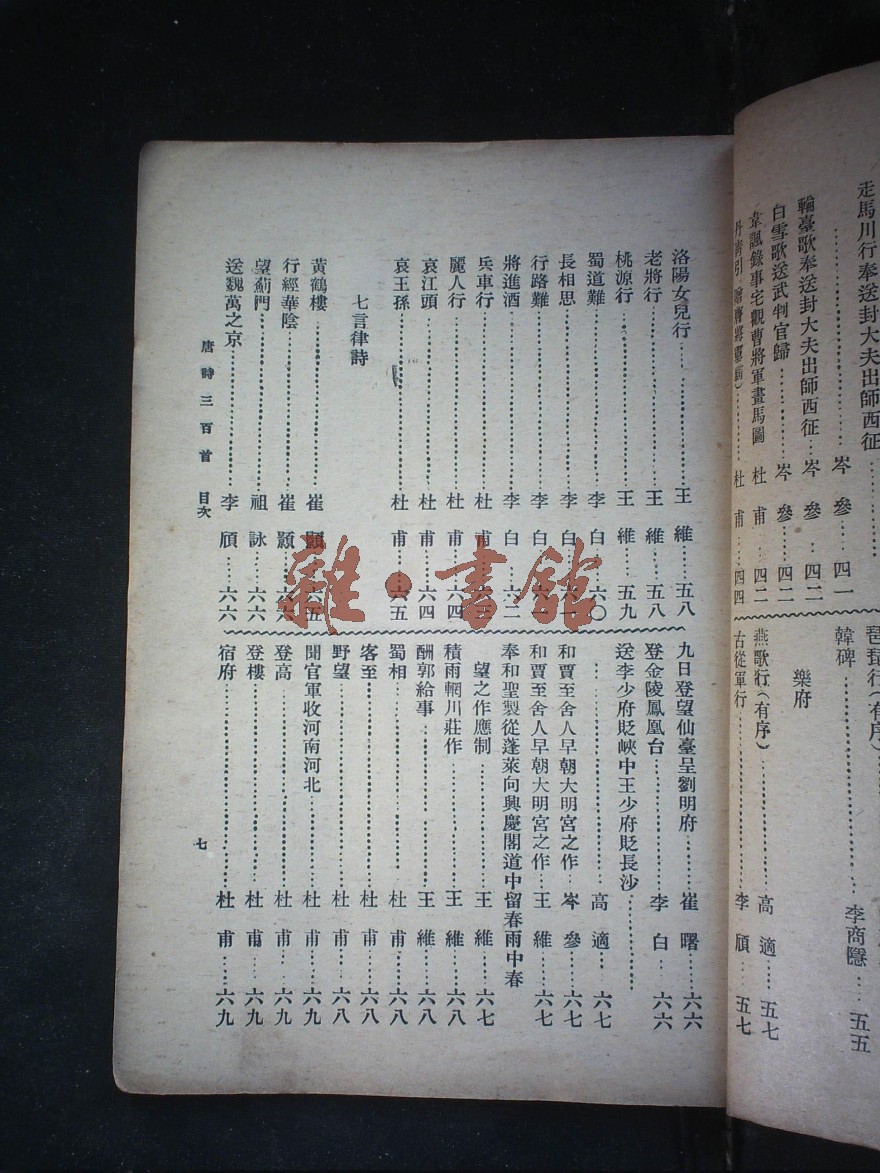 走馬川行奉送封大夫出師西征
岑參 四一
輪臺歌奉送封大夫出師西征 岑參 四二
白雪歌送武判官歸 岑參 四二
韋諷錄事宅觀曹將軍畫馬圖 杜甫 四二
丹青引 杜甫 四四
琵琶行(有序)
韓碑 李商隱 五五
樂府
燕歌行(有序) 高適 五七
古從軍行 李頎 五七
洛陽女兒行 王維 五八
老將行 王維 五八
桃源行 王維 五九
蜀道難 李白 六〇
長相思 李白
行路難 李白
將進酒 李白 六二
兵車行 杜甫
麗人行 杜甫 六四
哀江頭 杜甫 六四
哀王孫 杜甫 六五
七言律詩
黃鶴樓 崔顥 六五
行經華陰 崔顥 六六
望薊門 祖詠 六六
送魏萬之京 李頎 六六
九日登望仙臺呈劉明府 崔曙 六六
登金陵鳳凰台 李白 六六
送李少府貶峽中王少府貶長沙
高適 六七
和賈至舍人早朝大明宮之作 岑參 六七
和賈至舍人早朝大明宮之作 王維 六七
奉和聖製從蓬萊向興慶閣道中留春雨中春
望之作應制 王維 六七
積雨輞川莊作 王維 六八
酬郭給事 王維 六八
蜀相 杜甫 六八
客至 杜甫 六八
野望 杜甫 六八
聞官軍收河南河北 杜甫 六九
登高 杜甫 六九
登樓 杜甫 六九
宿府 杜甫 六九
唐詩三百首 目次
七
雜·書館